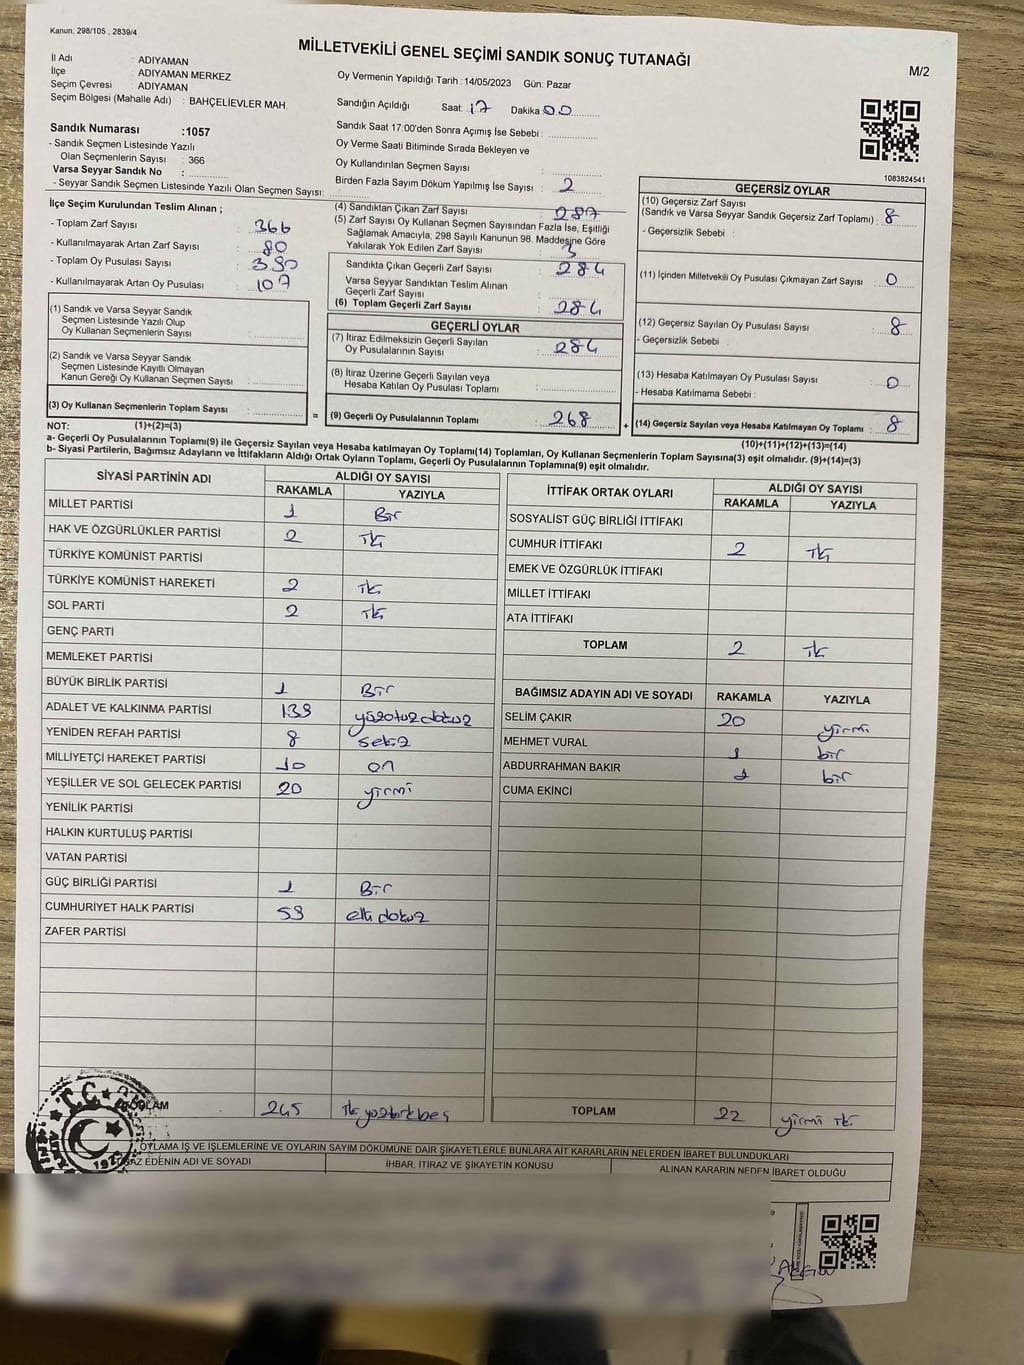 Kanun; 298/105 , 2839/4
MİLLETVEKİLİ GENEL SEÇİMİ SANDIK SONUÇ TUTANAĞI
M/2
İl Adı : ADIYAMAN
İlçe : ADIYAMAN MERKEZ
Seçim Çevresi : ADIYAMAN
Seçim Bölgesi (Mahalle Adı) : BAHÇELİEVLER MAH.
Sandık Numarası :1057
- Sandık Seçmen Listesinde Yazılı
Olan Seçmenlerin Sayısı : 366
Varsa Seyyar Sandık No :
- Seyyar Sandık Seçmen Listesinde Yazılı Olan Seçmen Sayısı:
Oy Vermenin Yapıldığı Tarih :14/05/2023 Gün: Pazar
Sandığın Açıldığı Saat: 17 Dakika 00
Sandık Saat 17:00'den Sonra Açımış İse Sebebi :
Oy Verme Saati Bitiminde Sırada Bekleyen ve
Oy Kullandırılan Seçmen Sayısı :
Birden Fazla Sayım Döküm Yapılmış İse Sayısı : 2
1083824541
İlçe Seçim Kurulundan Teslim Alınan ;
- Toplam Zarf Sayısı : 366
- Kullanılmayarak Artan Zarf Sayısı : 80
- Toplam Oy Pusulası Sayısı : 390
- Kullanılmayarak Artan Oy Pusulası : 107
(1) Sandık ve Varsa Seyyar Sandık
Seçmen Listesinde Yazılı Olup
Oy Kullanan Seçmenlerin Sayısı :
(2) Sandık ve Varsa Seyyar Sandık
Seçmen Listesinde Kayıtlı Olmayan
Kanun Gereği Oy Kullanan Seçmen Sayısı :
(3) Oy Kullanan Seçmenlerin Toplam Sayısı :
(4) Sandıktan Çıkan Zarf Sayısı : 287
(5) Zarf Sayısı Oy Kullanan Seçmen Sayısından Fazla İse, Eşitliği
Sağlamak Amacıyla, 298 Sayılı Kanunun 98. Maddesine Göre
Yakılarak Yok Edilen Zarf Sayısı : 3
Sandıkta Çıkan Geçerli Zarf Sayısı : 284
Varsa Seyyar Sandıktan Teslim Alınan
Geçerli Zarf Sayısı :
(6) Toplam Geçerli Zarf Sayısı : 284
GEÇERLİ OYLAR
(7) İtiraz Edilmeksizin Geçerli Sayılan
Oy Pusulalarının Sayısı : 284
(8) İtiraz Üzerine Geçerli Sayılan veya
Hesaba Katılan Oy Pusulası Toplamı :
= (9) Geçerli Oy Pusulalarının Toplamı : 268
GEÇERSİZ OYLAR
(10) Geçersiz Zarf Sayısı
(Sandık ve Varsa Seyyar Sandık Geçersiz Zarf Toplamı) : 8
- Geçersizlik Sebebi :
(11) İçinden Milletvekili Oy Pusulası Çıkmayan Zarf Sayısı : 0
(12) Geçersiz Sayılan Oy Pusulası Sayısı : 8
- Geçersizlik Sebebi :
(13) Hesaba Katılmayan Oy Pusulası Sayısı : 0
- Hesaba Katılmama Sebebi :
+ (14) Geçersiz Sayılan veya Hesaba Katılmayan Oy Toplamı : 8
NOT: (1)+(2)=(3)
(10)+(11)+(12)+(13)=(14)
a- Geçerli Oy Pusulalarının Toplamı(9) ile Geçersiz Sayılan veya Hesaba katılmayan Oy Toplamı(14) Toplamları, Oy Kullanan Seçmenlerin Toplam Sayısına(3) eşit olmalıdır. (9)+(14)=(3)
b- Siyasi Partilerin, Bağımsız Adayların ve İttifakların Aldığı Ortak Oyların Toplamı, Geçerli Oy Pusulalarının Toplamına(9) eşit olmalıdır.
SİYASİ PARTİNİN ADI ALDIĞI OY SAYISI
RAKAMLA YAZIYLA
MİLLET PARTİSİ 1 Bir
HAK VE ÖZGÜRLÜKLER PARTİSİ 2 İki
TÜRKİYE KOMÜNİST PARTİSİ
TÜRKİYE KOMÜNİST HAREKETİ 2 İki
SOL PARTİ 2 İki
GENÇ PARTİ
MEMLEKET PARTİSİ
BÜYÜK BİRLİK PARTİSİ 1 Bir
ADALET VE KALKINMA PARTİSİ 139 yüzotuzdokuz
YENİDEN REFAH PARTİSİ 8 sekiz
MİLLİYETÇİ HAREKET PARTİSİ 10 on
YEŞİLLER VE SOL GELECEK PARTİSİ 20 yirmi
YENİLİK PARTİSİ
HALKIN KURTULUŞ PARTİSİ
VATAN PARTİSİ
GÜÇ BİRLİĞİ PARTİSİ 1 Bir
CUMHURİYET HALK PARTİSİ 59 elli dokuz
ZAFER PARTİSİ
TOPLAM 245 ikiyüzkırkbeş
İTTİFAK ORTAK OYLARI ALDIĞI OY SAYISI
RAKAMLA YAZIYLA
SOSYALİST GÜÇ BİRLİĞİ İTTİFAKI
CUMHUR İTTİFAKI 2 İki
EMEK VE ÖZGÜRLÜK İTTİFAKI
MİLLET İTTİFAKI
ATA İTTİFAKI
TOPLAM 2 İki
BAĞIMSIZ ADAYIN ADI VE SOYADI RAKAMLA YAZIYLA
SELİM ÇAKIR 20 yirmi
MEHMET VURAL 1 bir
ABDURRAHMAN BAKIR 1 bir
CUMA EKİNCİ
TOPLAM 22 yirmi iki
T.C.
OYLAMA İŞ VE İŞLEMLERİNE VE OYLARIN SAYIM DÖKÜMÜNE DAİR ŞİKAYETLERLE BUNLARA AİT KARARLARIN NELERDEN İBARET BULUNDUKLARI
EDENİN ADI VE SOYADI İHBAR, İTİRAZ VE ŞİKAYETİN KONUSU ALINAN KARARIN NEDEN İBARET OLDUĞU